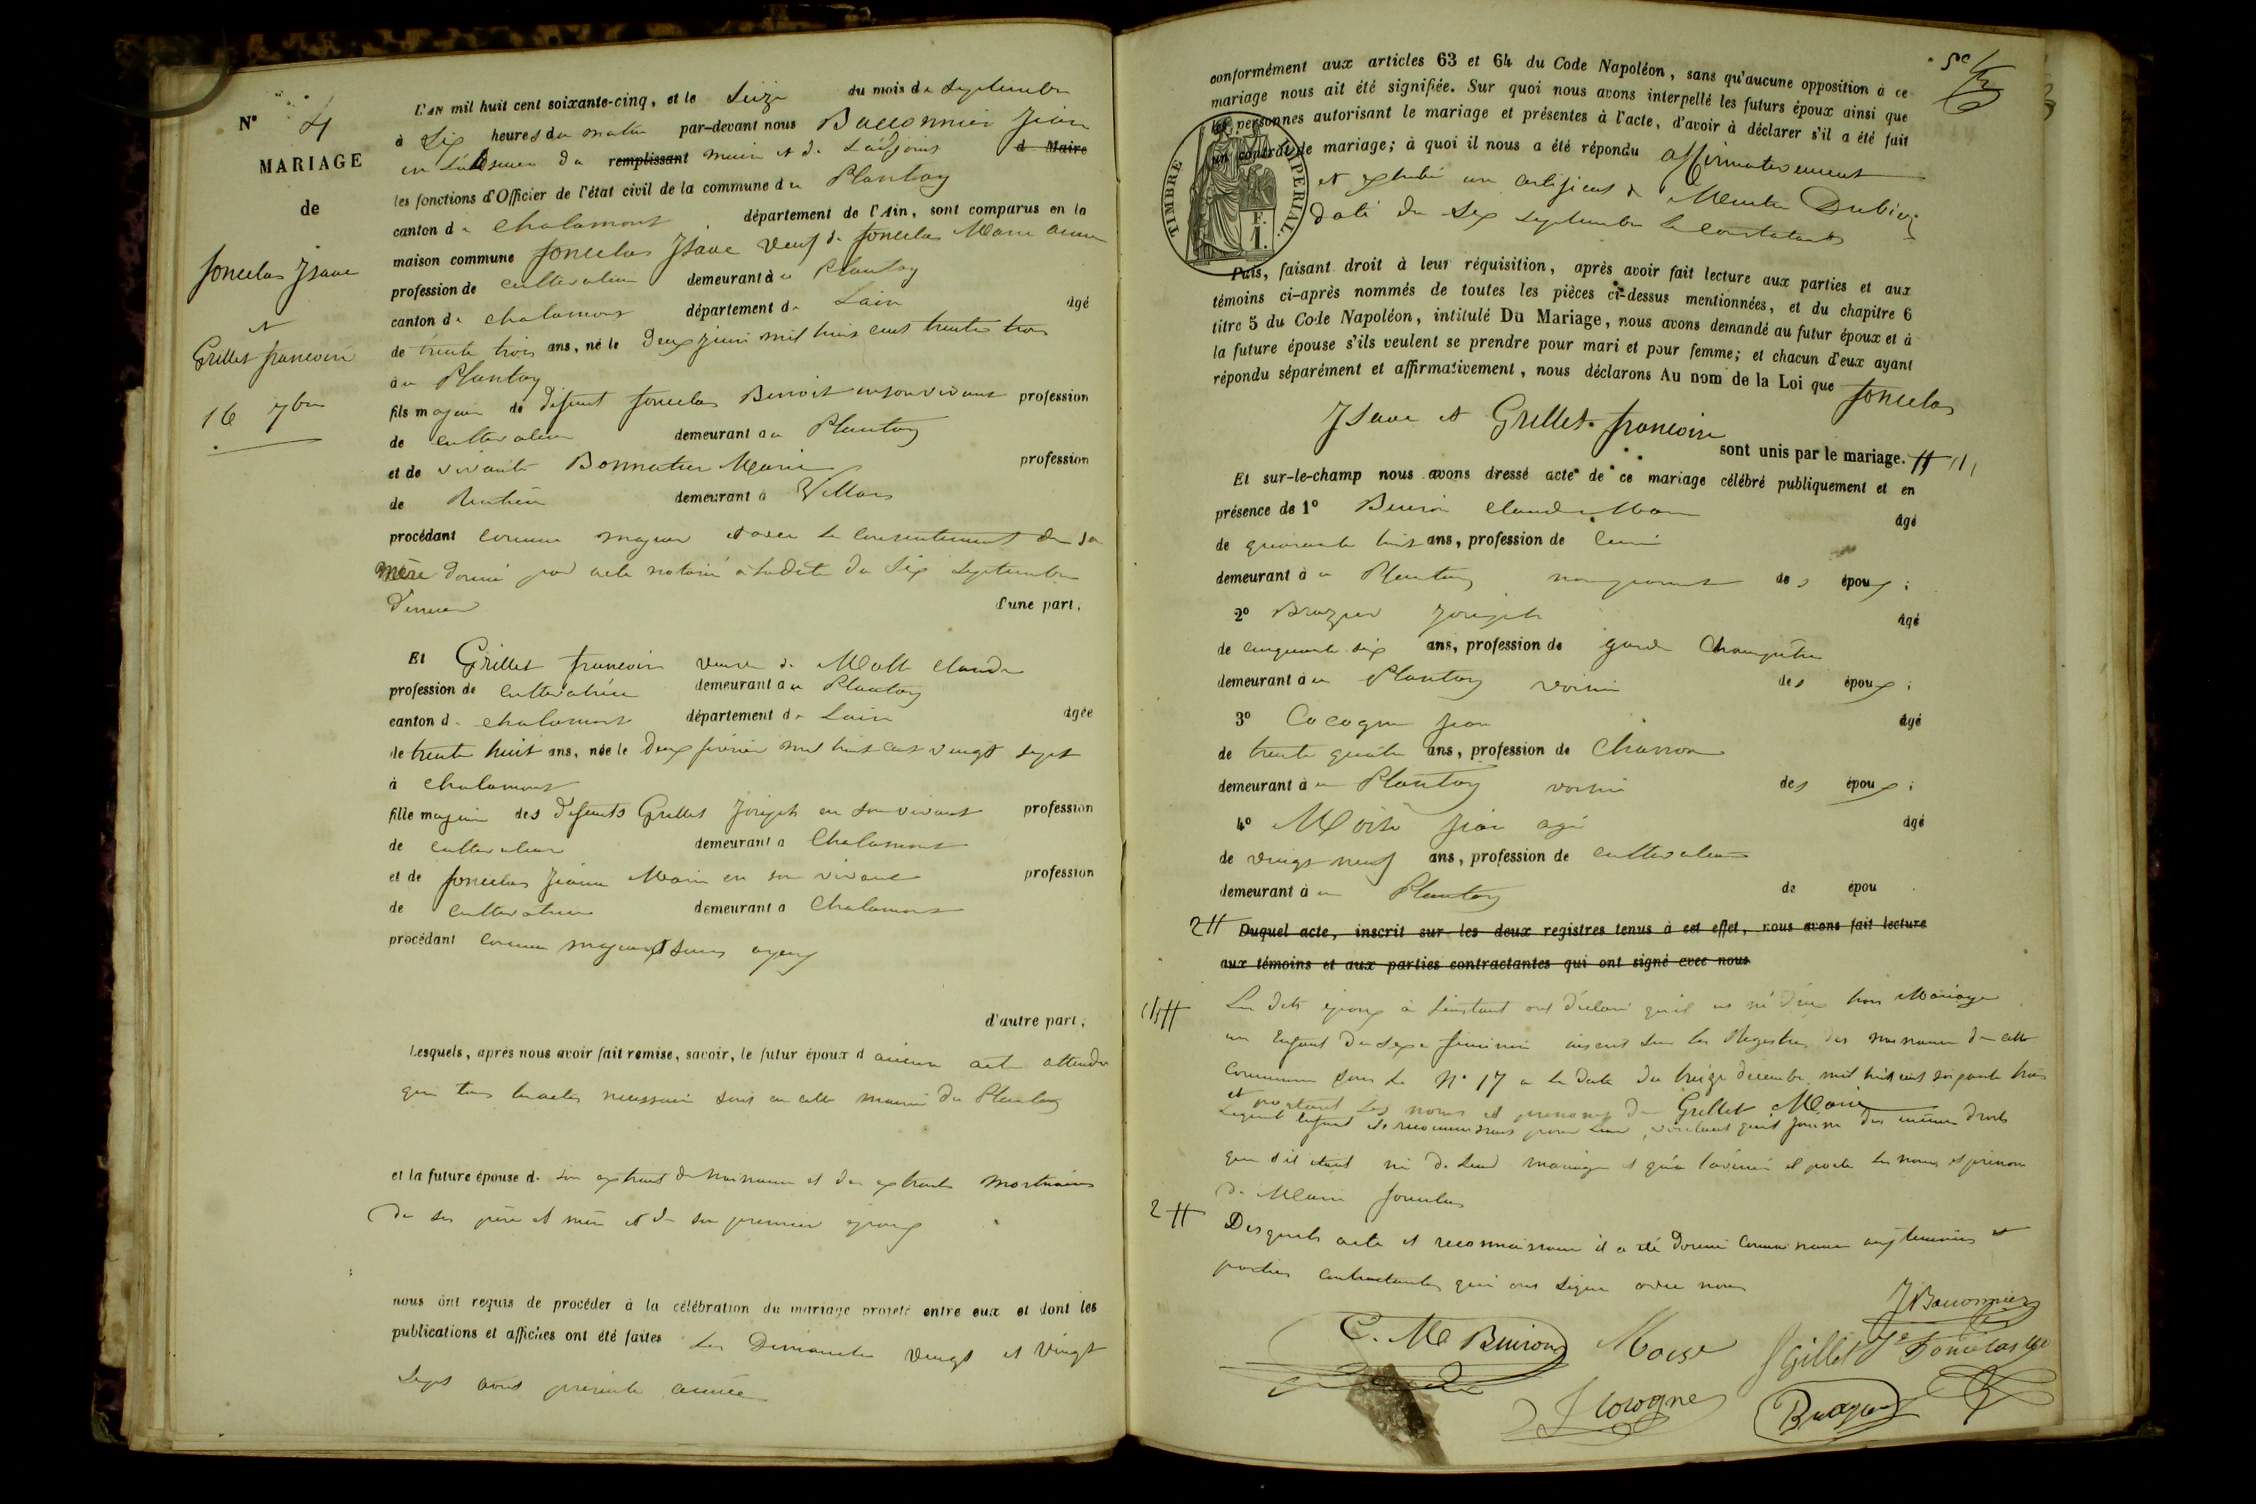 N° 4
MARIAGE
de
Joncelas Isaac
et
Grillet françoise
16 7bre
L'an mil huit cent soixante-cinq, et le Seize du mois de Septembre
à Six heures du matin par-devant nous Baconnier Jean
en l'absence du remplissant maire et de l'adjoint d Maire
les fonctions d'Officier de l'état civil de la commune du Plantay
canton de Chalamont département de l'Ain, sont comparus en la
maison commune Joncelas Isaac Veuf de Joncelas Marie
profession de cultivateur demeurant à u Plantay
canton de Chalamont département de Lain âgé
de trente trois ans, né le deux juin mil huit cent trente trois
à u Plantay
fils majeur de défunt Joncelas Benoit en son vivant profession
de cultivateur demeurant au Plantay
et de vivante Bonnatier Marie profession
de Rentière demeurant à Villars
procédant comme majeur et avec le consentement de sa
mère donné par acte notarié à la date du Six Septembre
dernier d'une part.
Et Grillet françoise veuve de Claude
profession de cultivatrice demeurant au Plantay
canton de Chalamont département de Lain âgée
de trente huit ans, née le deux février mil huit cent vingt sept
à Chalamont
fille majeure des défunts Grillet Joseph en son vivant profession
de cultivateur demeurant à Chalamont
et de Joncelas Jeanne Marie en son vivant profession
de cultivatrice demeurant à Chalamont
procédant comme majeure et sans ayeux
d'autre part;
Lesquels, après nous avoir fait remise, savoir, le futur époux d'aucun acte attendu
que tous les actes nécessaires sont en cette mairie du Plantay
et la future épouse de son extrait de naissance et des extraits mortuaires
de ses père et mère et de son premier époux
nous ont requis de procéder à la célébration du mariage projeté entre eux et dont les
publications et affiches ont été faites les Dimanches vingt et vingt
sept août présente année
conformément aux articles 63 et 64 du Code Napoléon, sans qu'aucune opposition à ce
mariage nous ait été signifiée. Sur quoi nous avons interpellé les futurs époux ainsi que
les personnes autorisant le mariage et présentes à l'acte, d'avoir à déclarer s'il a été fait
un contrat de mariage; à quoi il nous a été répondu affirmativement
et exhibé un certificat de Me
daté du Six septembre le constatant
TIMBRE IMPERIAL
F.
1.
Puis, faisant droit à leur réquisition, après avoir fait lecture aux parties et aux
témoins ci-après nommés de toutes les pièces ci-dessus mentionnées, et du chapitre 6
titre 5 du Code Napoléon, intitulé Du Mariage, nous avons demandé au futur époux et à
la future épouse s'ils veulent se prendre pour mari et pour femme; et chacun d'eux ayant
répondu séparément et affirmativement, nous déclarons Au nom de la Loi que Joncelas
Isaac et Grillet françoise sont unis par le mariage. (1)
Et sur-le-champ nous avons dressé acte de ce mariage célébré publiquement et en
présence de 1° Buiron Claude Marie âgé
de quarante huit ans, profession de Curé
demeurant à u Plantay non parent des époux;
2° Brazier Joseph âgé
de cinquante six ans, profession de garde Champêtre
demeurant à u Plantay voisin des époux;
3° Cocogne Jean âgé
de trente quatre ans, profession de Charron
demeurant à u Plantay voisin des époux;
4° Moise Jean agé âgé
de vingt neuf ans, profession de cultivateur
demeurant à u Plantay de épou
2 Duquel acte, inscrit sur les deux registres tenus à cet effet, nous avons fait lecture
aux témoins et aux parties contractantes qui ont signé avec nous
(1) Les dits époux à l'instant ont déclaré qu'il est né d'eux hors Mariage
un Enfant du Sexe féminin inscrit sur les Registres des naissances de cette
Commune sous le N° 17 à la date du treize décembre mil huit cent soixante trois
et portant les noms et prenoms de Grillet Marie
Lequel enfant ils reconnaissent pour leur, voulant qu'il jouisse des mêmes droits
que s'il etait né de leur mariage et qu'à l'avenir il porte les noms et prénoms
de Marie Joncelas
2 Desquels acte et reconnaissance il a été donné connaissance aux témoins et
parties contractantes qui ont signé avec nous
J Baconnier
C. M Buiron Moise f Gillet Je Joncelas
J Cocogne Brazier